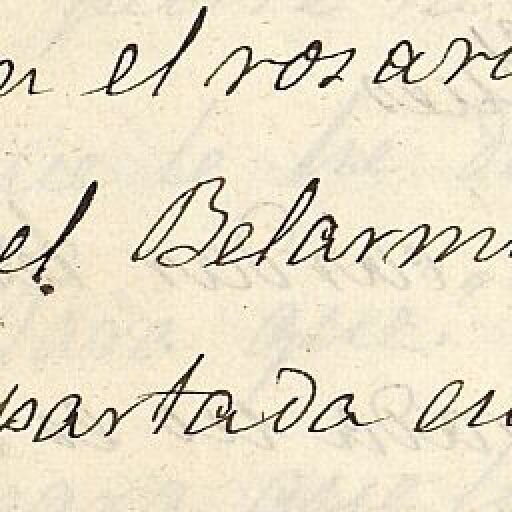 n el rosar
el. Belarm
partada en